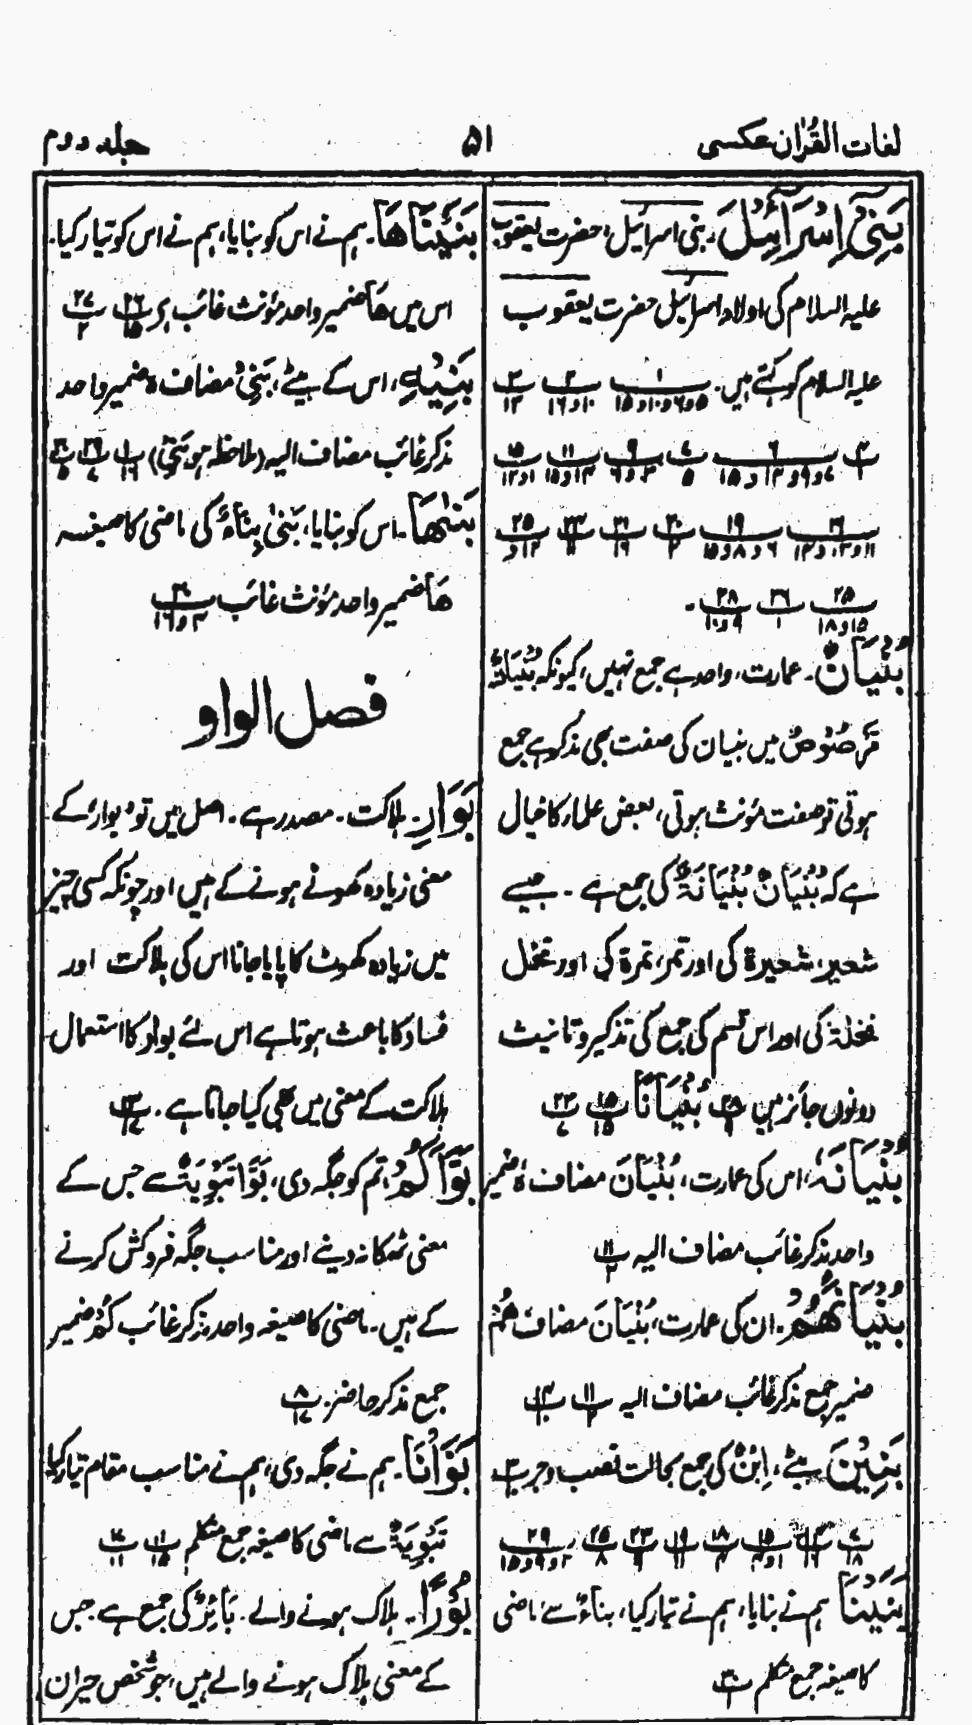 لغات القرآن عکسی
۵۱
جلد دوم
بَنِیْٓ اِسْرَآئِیْلَ۔ بنی اسرائیل، حضرت یعقوب
علیہ السلام کی اولاد اسرائیل حضرت یعقوب
علیہ السلام کو کہتے ہیں۔
بُنْیَانٌ۔ عمارت، واحد ہے جمع نہیں، کیونکہ بُنْیَانٌ
مَّرْصُوْصٌ میں بنیان کی صفت بھی مذکر ہے جمع
ہوتی تو صفت مؤنث ہوتی، بعض علماء کا خیال
ہے کہ بُنْیَانٌ بُنْیَانَۃٌ کی جمع ہے۔ جیسے
شعیر، شعیرۃ کی اور تمر، تمرۃ کی اور نخل
نخلۃ کی اور اس قسم کی جمع کی تذکیر و تانیث
دونوں جائز ہیں بُنْیَانًا
بُنْیَانَہٗ، اس کی عمارت، بُنْیَانَ مضاف ہٗ ضمیر
واحد مذکر غائب مضاف الیہ ۱۱/۲
بُنْیَانُهُمْ۔ ان کی عمارت، بُنْیَانَ مضاف هُمْ
ضمیر جمع مذکر غائب مضاف الیہ
بَنِیْنَ بیٹے، اِبْنٌ کی جمع بحالت نصب و جر
بَنَیْنَا ہم نے بنایا، ہم نے تیار کیا، بناءٌ سے ماضی
کا صیغہ جمع متکلم
بَنَیْنَاهَا۔ ہم نے اس کو بنایا، ہم نے اس کو تیار کیا۔
اس میں ھَا ضمیر واحد مؤنث غائب ہر ۲۶/۱۵ ۲۷/۲
بَنِیْہِ، اس کے بیٹے، بَنِیْ مضاف ہ ضمیر واحد
مذکر غائب مضاف الیہ (ملاحظہ ہو بَنِیَّ)
بَنٰهَا۔ اس کو بنایا، بَنٰی بِنَآءٌ کی ماضی کا صیغہ
هَا ضمیر واحد مؤنث غائب
فصل الواو
بَوَارِ۔ ہلاکت۔ مصدر ہے۔ اصل میں تو بوار کے
معنی زیادہ کھوٹے ہونے کے ہیں اور چونکہ کسی چیز
میں زیادہ کھوٹ کا پایا جانا اس کی ہلاکت اور
فساد کا باعث ہوتا ہے اس لئے بوار کا استعمال
ہلاکت کے معنی میں بھی کیا جاتا ہے۔
بَوَّاَکُمْ، تم کو جگہ دی، بَوَّاَ تَبْوِیَۃٌ سے جس کے
معنی ٹھکانہ دینے اور مناسب جگہ فروکش کرنے
کے ہیں۔ ماضی کا صیغہ واحد مذکر غائب کُمْ ضمیر
جمع مذکر حاضر۔ ۸/۱۷
بَوَّاْنَا۔ ہم نے جگہ دی، ہم نے مناسب مقام تیار کیا
تَبْوِیَۃٌ سے ماضی کا صیغہ جمع متکلم ۱۱/۱۵ ۱۷/۱۱
بُوْرًا۔ ہلاک ہونے والے۔ بَائِرٌ کی جمع ہے جس
کے معنی ہلاک ہونے والے ہیں، جو شخص حیران